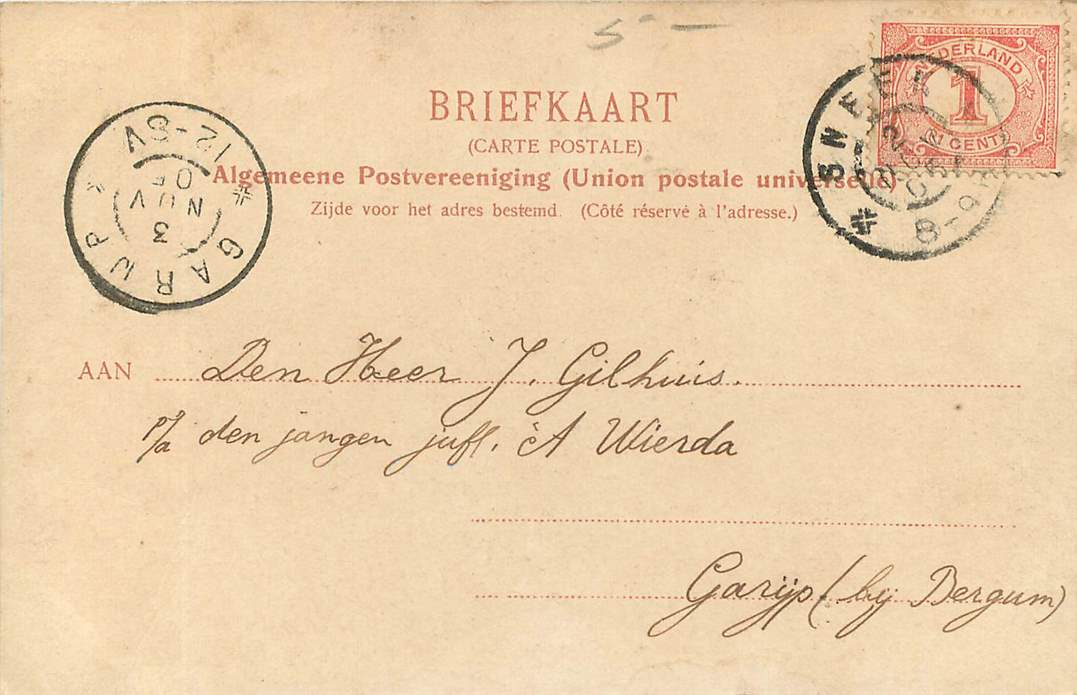 5 -
NEDERLAND
1
CENT
SNEEK
8-9
BRIEFKAART
(CARTE POSTALE)
Algemeene Postvereeniging (Union postale universelle)
Zijde voor het adres bestemd. (Côté réservé à l'adresse.)
12-8V
3 NOV
GARIJP
AAN Den Heer J. Gilhuis.
p/a den jongen juff. A Wierda
Garijp (bij Bergum)